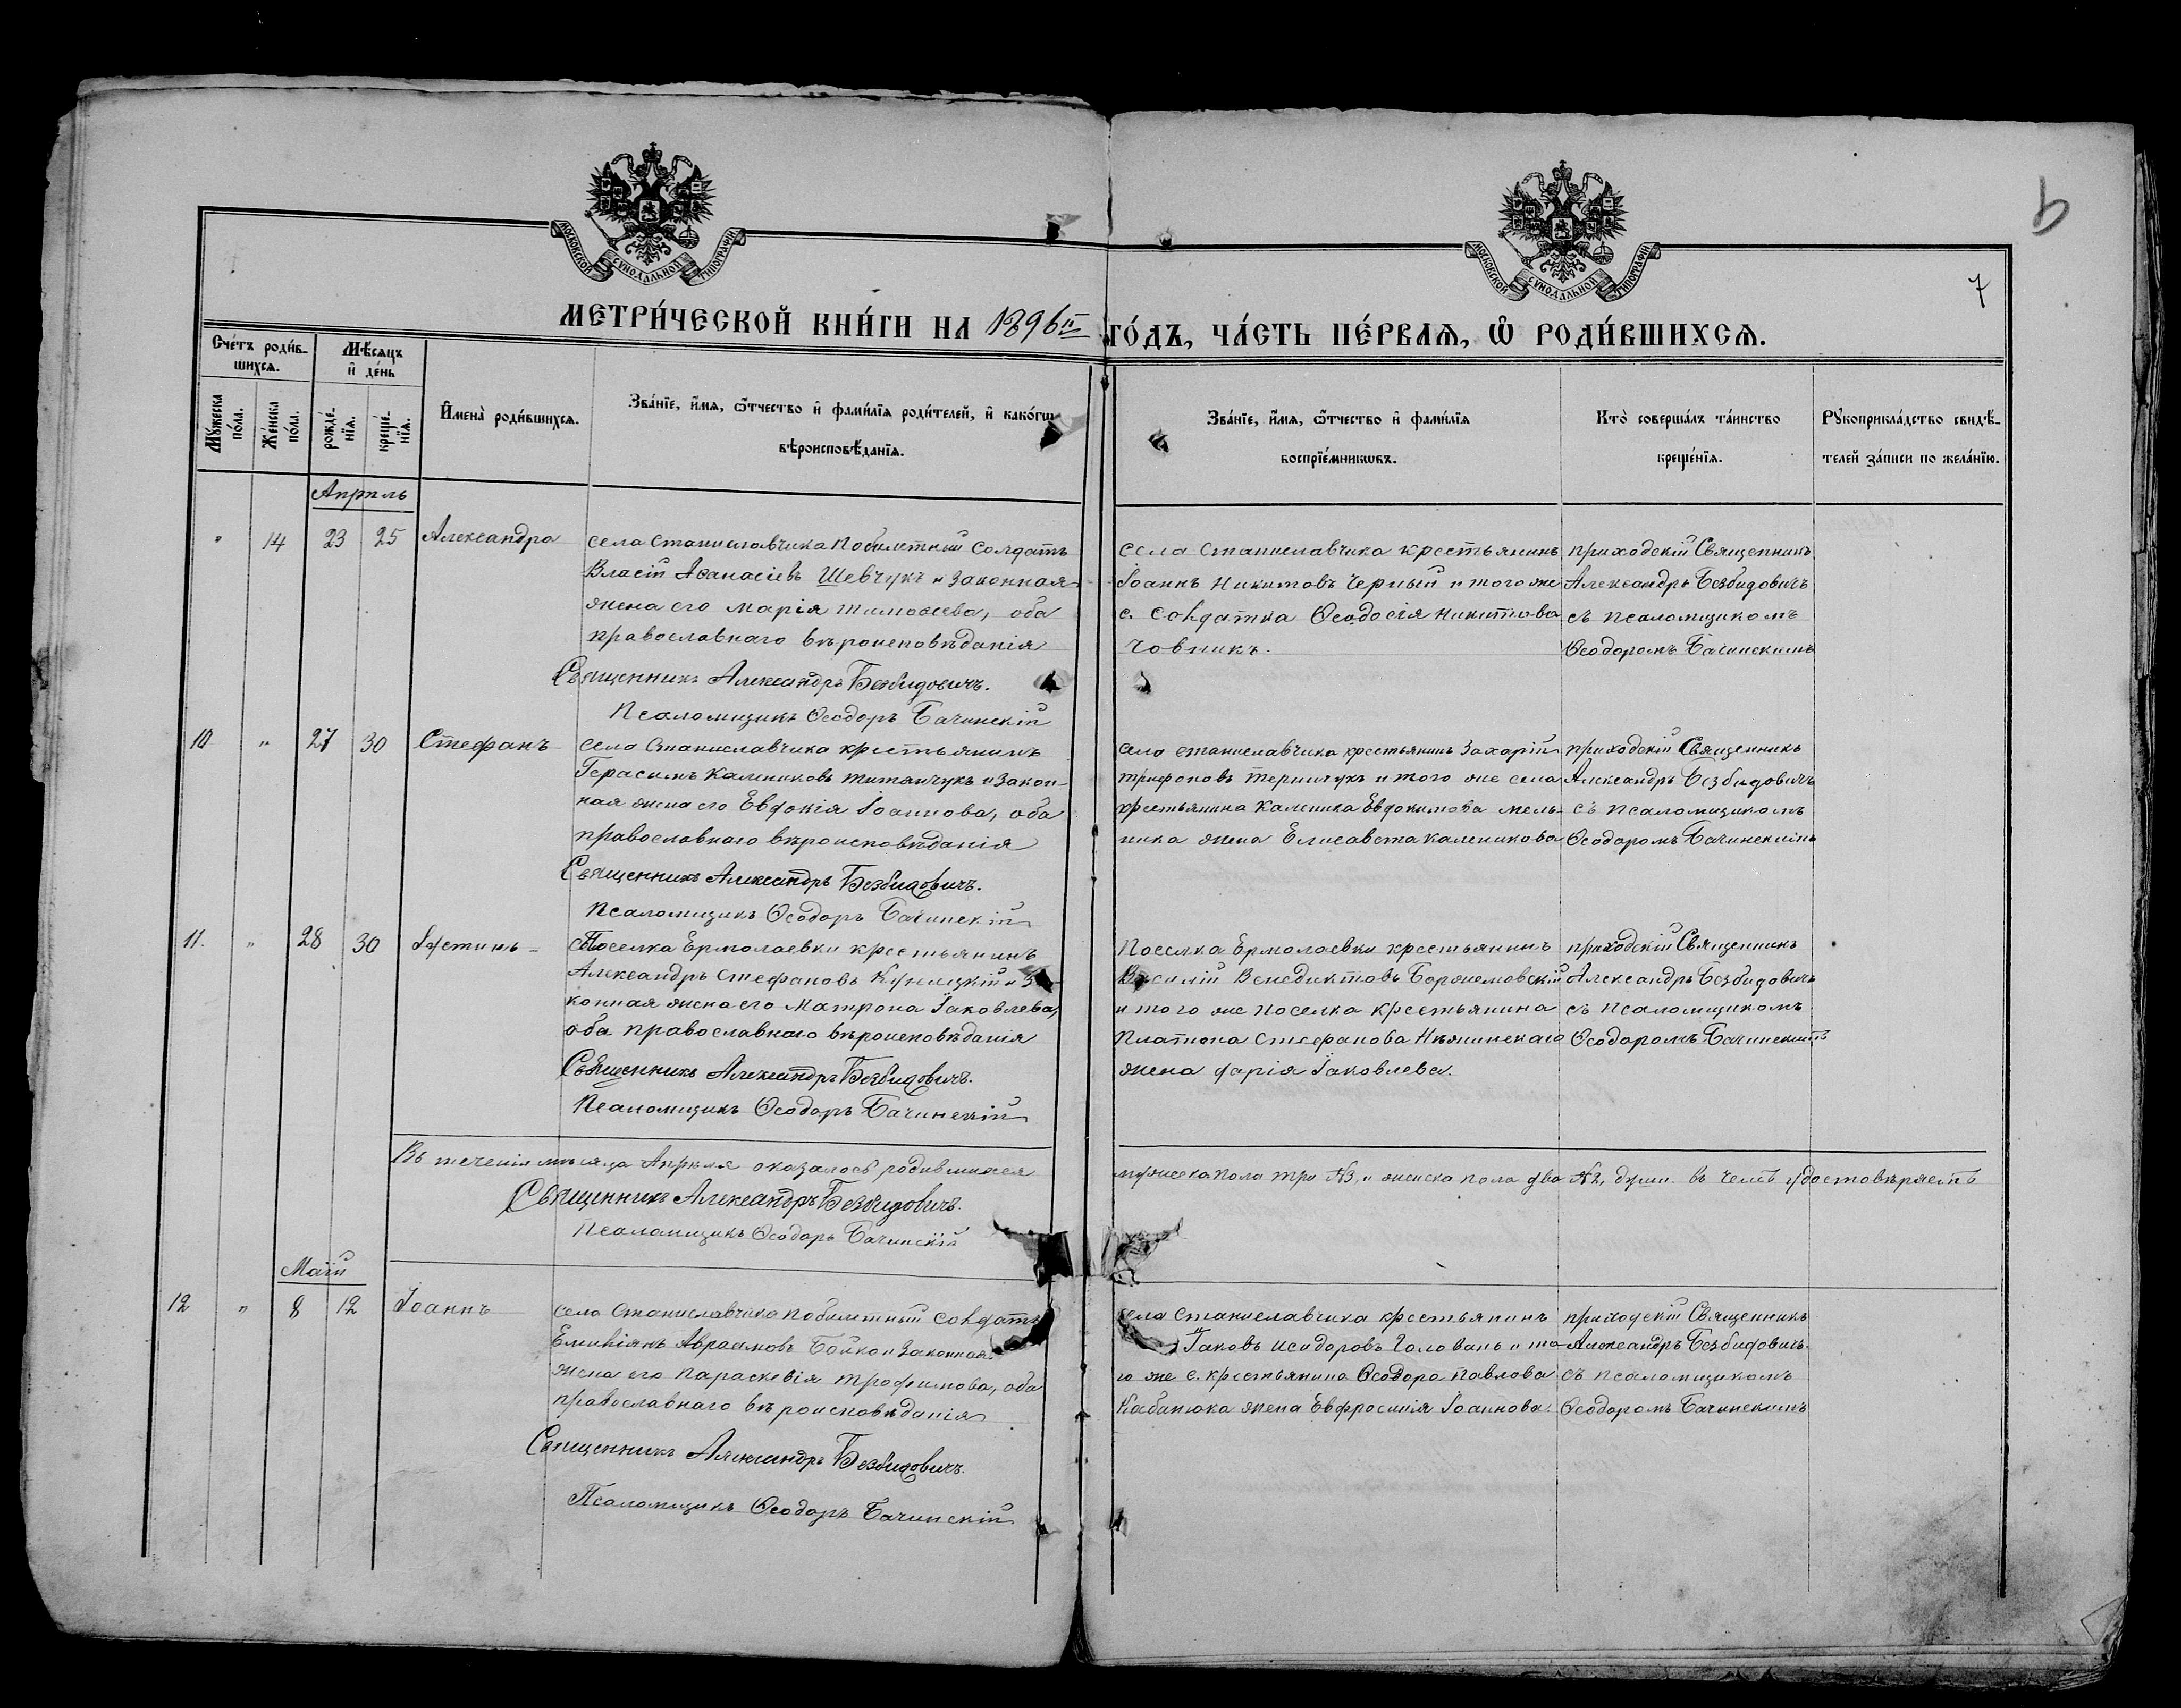 МОСКОВСКОЙ СѴНОДАЛЬНОЙ ТИПОГРАФИИ
МОСКОВСКОЙ СѴНОДАЛЬНОЙ ТИПОГРАФИИ
7
МЕТРИ́ЧЕСКОЙ КНИ́ГИ НА 1896й ГО́ДЪ, ЧА́СТЬ ПЕ́РВАѦ, Ѿ РОДИ́ВШИХСѦ.
Сче́тъ роди́в-
шихсѧ.
Мѣ́сѧцъ
и҆ де́нь
Мꙋ́жеска по́ла.
Же́нска по́ла.
рожде́-
нїѧ.
креще́-
нїѧ.
И҆мена̀ роди́вшихсѧ.
Зва́нїе, и҆́мѧ, ѻ҆́тчество и҆ фами́лїѧ роди́телей, и҆ како́гѡ
вѣроисповѣ́данїѧ.
Зва́нїе, и҆́мѧ, ѻ҆́тчество и҆ фами́лїѧ
воспрїе́мникѡвъ.
Кто̀ соверша́лъ та́инство
креще́нїѧ.
Рꙋкоприкла́дство свидѣ́-
телей за́писи по жела́нїю.
Апрѣль
" 14 23 25 Александра
села Станиславчика побилетный солдатъ
Власій Аѳанасіевъ Шевчукъ и законная
жена его Марія Тимоѳеева, оба
православнаго вѣроисповѣданія
Священникъ Александръ Безвидовичъ.
Псаломщикъ Ѳеодоръ Бачинскій
села Станиславчика крестьянинъ
Іоаннъ Никитовъ Черный и того же
с. солдатка Ѳеодосія Никитова
Човникъ.
приходскій Священникъ
Александръ Безвидовичъ
съ псаломщикомъ
Ѳеодоромъ Бачинскимъ
10 " 27 30 Стефанъ
села Станиславчика крестьянинъ
Герасимъ Калениковъ Титянчукъ и закон-
ная жена его Евдокія Іоаннова, оба
православнаго вѣроисповѣданія
Священникъ Александръ Безвидовичъ.
Псаломщикъ Ѳеодоръ Бачинскій
села Станиславчика крестьянинъ Захарій
Трифоновъ и того же села
крестьянина Каленика Евдокимова Мель-
ника жена Елисавета Каленикова
приходскій Священникъ
Александръ Безвидовичъ
съ псаломщикомъ
Ѳеодоромъ Бачинскимъ
11. " 28 30 Іустинъ
Поселка Ермолаевки крестьянинъ
Александръ Стефановъ и
конная жена его Матрона Іаковлева,
оба православнаго вѣроисповѣданія
Священникъ Александръ Безвидовичъ.
Псаломщикъ Ѳеодоръ Бачинскій
Поселка Ермолаевки крестьянинъ
Василій Венедиктовъ
и того же поселка крестьянина
Платона Стефанова
жена Дарія Іаковлева.
приходскій Священникъ
Александръ Безвидовичъ
съ псаломщикомъ
Ѳеодоромъ Бачинскимъ
Въ теченія мѣсяца Апрѣля оказалось родившихся
мужеска пола три №3, и женска пола два №2, души. въ чемъ удостовѣряемъ
Священникъ Александръ Безвидовичъ.
Псаломщикъ Ѳеодоръ Бачинскій
Маій
12 " 8 12 Іоаннъ
села Станиславчика побилетный солдатъ
Емиліянъ Авраамовъ Бойко и законная
жена его Параскевія Трофимова, оба
православнаго вѣроисповѣданія
Священникъ Александръ Безвидовичъ.
Псаломщикъ Ѳеодоръ Бачинскій
села Станиславчика крестьянинъ
Іаковъ Исидоровъ Головань и то-
го же с. крестьянина Ѳеодора Павлова
Кабанюка жена Евфросинія Іоаннова.
приходскій Священникъ
Александръ Безвидовичъ.
съ псаломщикомъ
Ѳеодоромъ Бачинскимъ